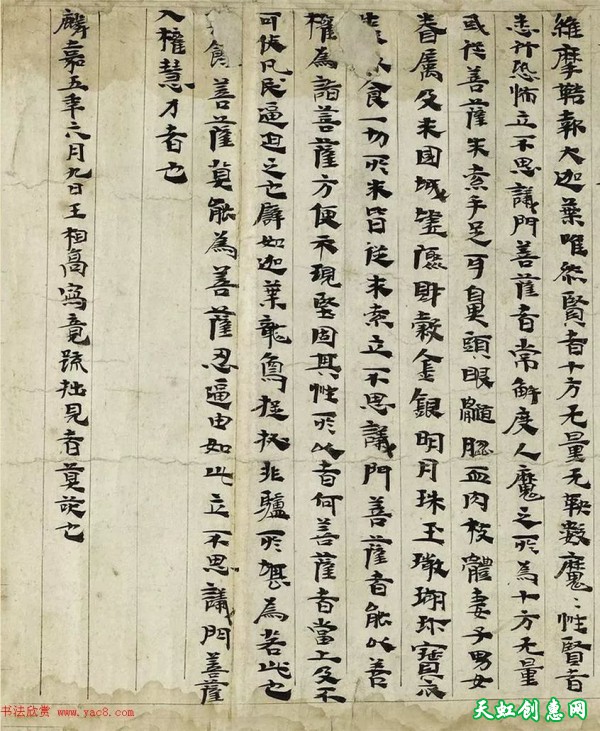 維摩鞊報大迦葉唯然賢者十方无量无鞅數魔〻性賢者
悉行恐怖立不思議門菩薩者常解度人魔之所為十方无量
或從菩薩求索手足耳鼻頭眼髓腦血肉枝體妻子男女
眷屬及求國城財穀金銀明月珠玉瑚珍寶衣
食一切所求皆從求索立不思議門菩薩者能以善
權為諸菩薩方便示現堅固其性所以者何菩薩者當上及不
可使凡民逼迫之也辟如迦葉龍象捉扠非驢所堪為若此也
菩薩莫能為菩薩忍逼由如此立不思議門菩薩
入權慧力者也
麟嘉五年六月九日王相高寫竟疏拙見者莫咲也
书法欣赏 www.yac8.com
天虹创惠网